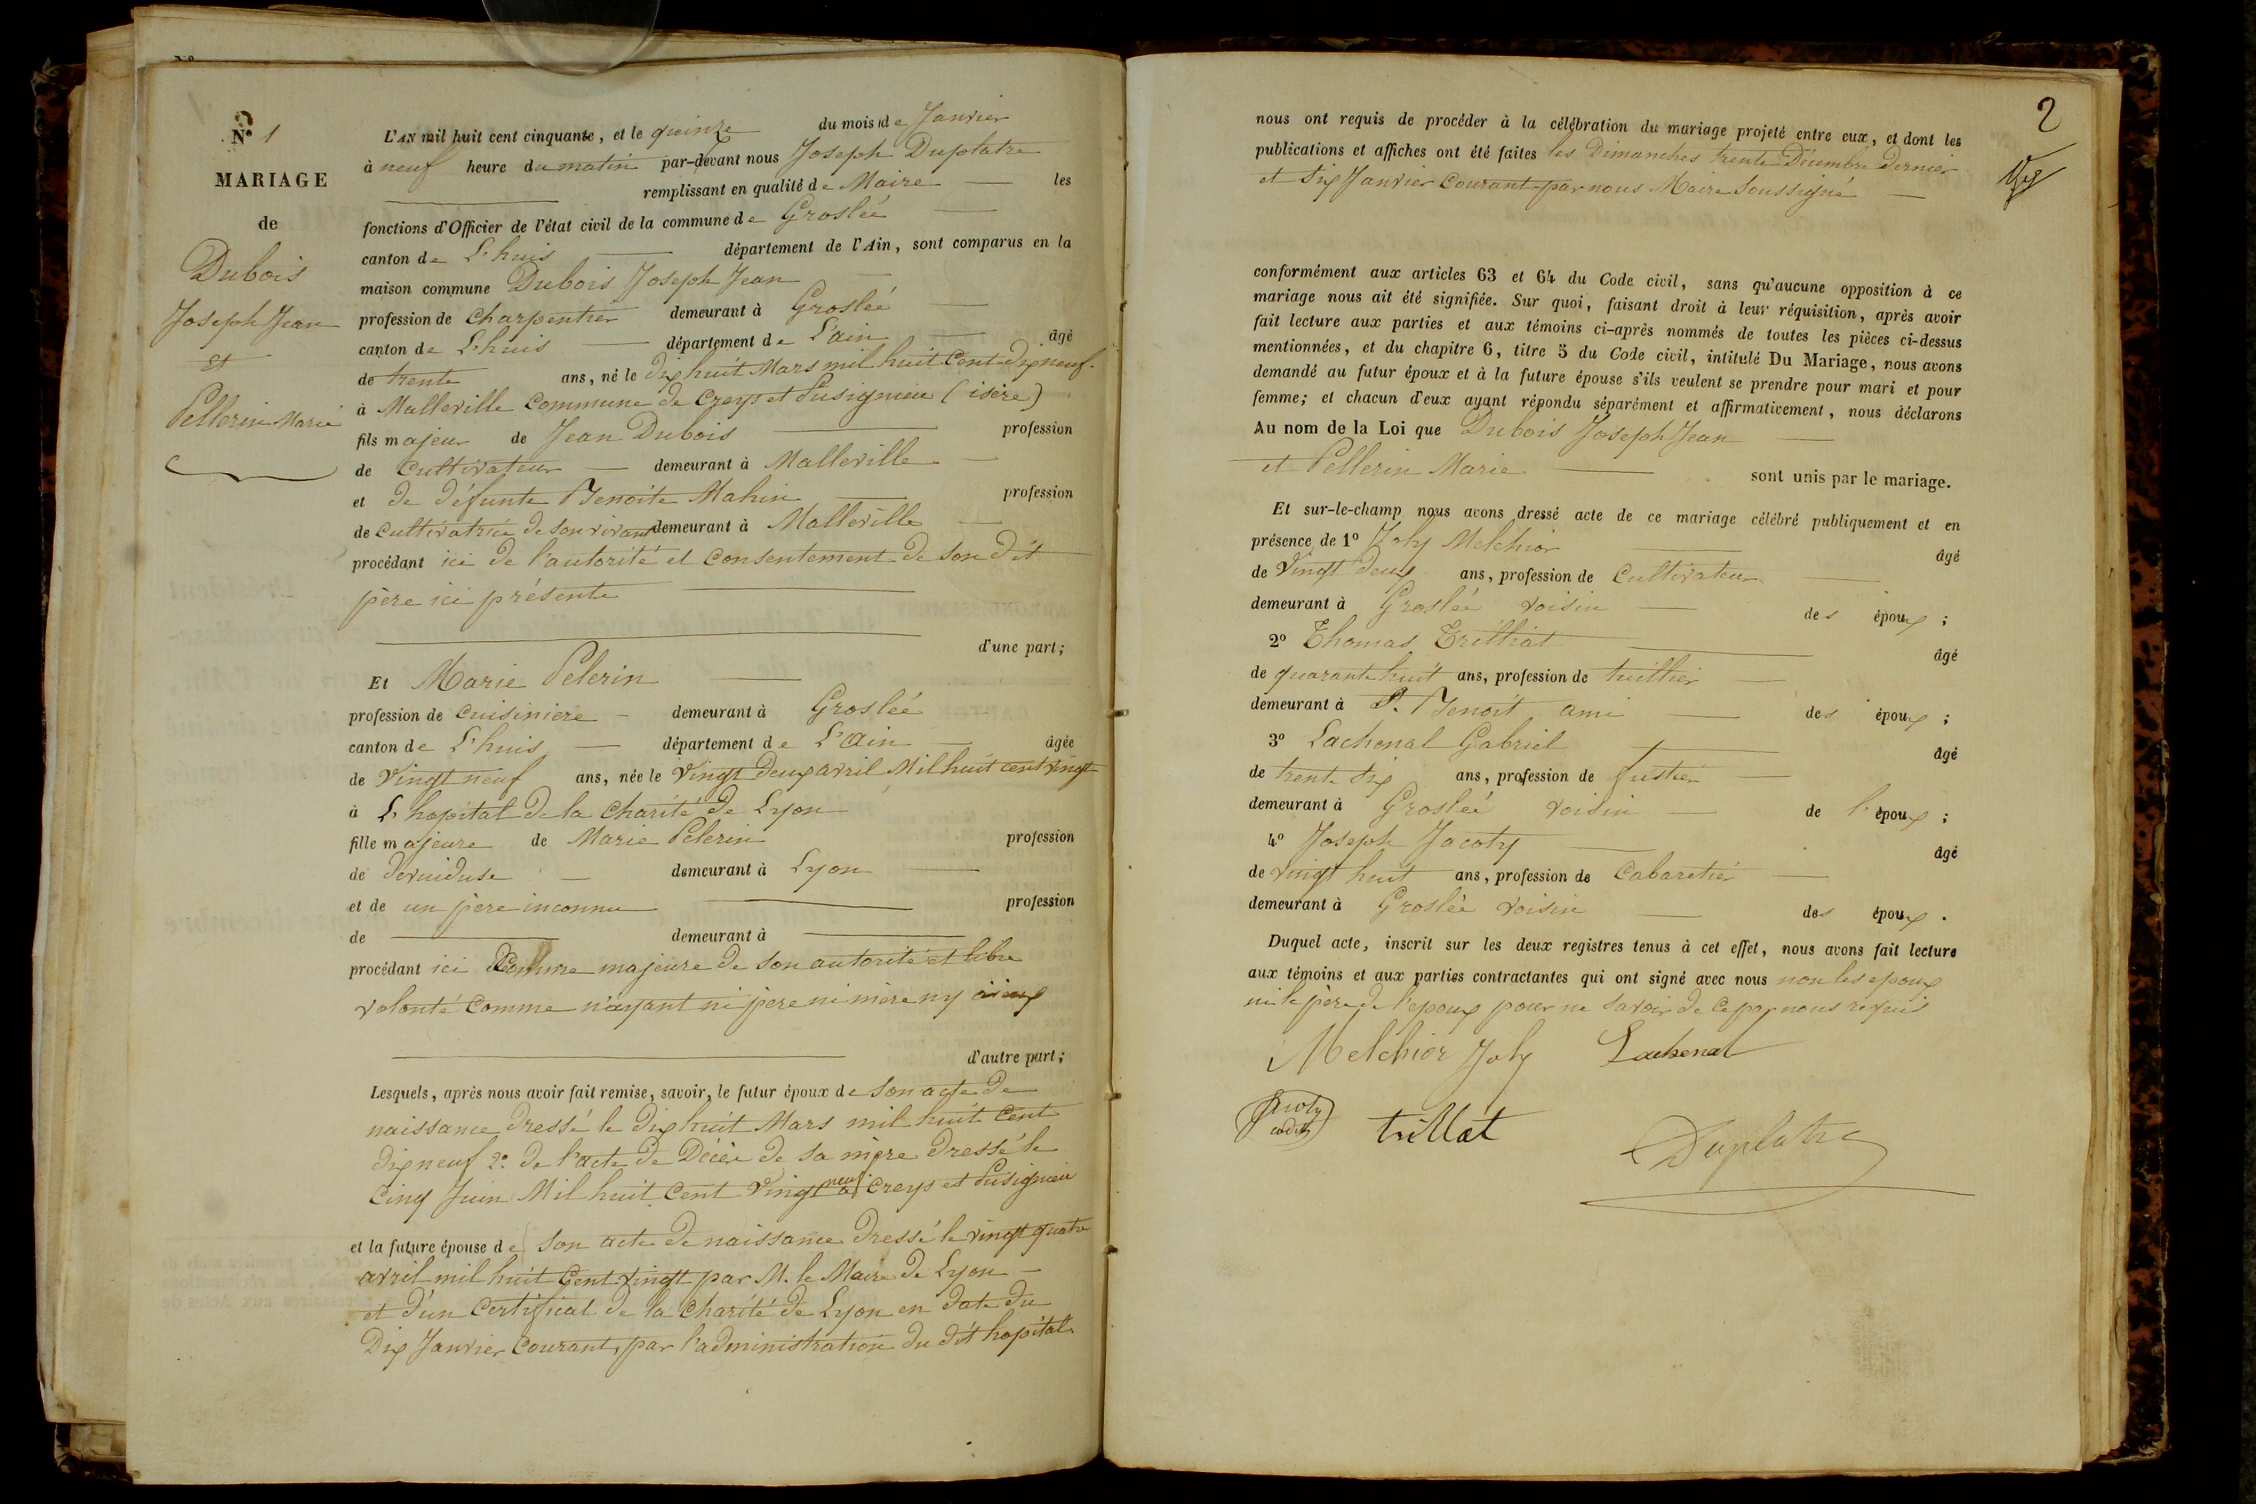 N° 1
MARIAGE
de
Dubois
Joseph Jean
et
Pellerin Marie
L'AN mil huit cent cinquante, et le quinze du mois de Janvier
à neuf heure du matin par-devant nous Joseph Duplatre
remplissant en qualité de Maire les
fonctions d'Officier de l'état civil de la commune de Groslée
canton de L'huis département de l'Ain, sont comparus en la
maison commune Dubois Joseph Jean
profession de charpentier demeurant à Groslée
canton de L'huis département de L'ain âgé
de trente ans, né le dix huit Mars mil huit Cent dix neuf.
à Malleville Commune de Creys et Pusignieu (isère)
fils majeur de Jean Dubois profession
de Cultivateur demeurant à Malleville
et de défunte Benoite Mahin profession
de Cultivatrice de son vivant demeurant à Malleville
procédant ici de l'autorité et consentement de son dit
père ici présente
d'une part;
Et Marie Pelerin
profession de cuisiniere demeurant à Groslée
canton de L'huis département de L'Ain âgée
de Vingt neuf ans, née le Vingt deux avril Mil huit cent vingt
à L'hopital de la Charité de Lyon
fille majeure de Marie Pelerin profession
de Devuiduse demeurant à Lyon
et de un père inconnu profession
de demeurant à
procédant ici Comme majeure de son autorité et libre
volonté Comme n'ayant ni père ni mère ny aieux
d'autre part;
Lesquels, après nous avoir fait remise, savoir, le futur époux de son acte de
naissance dressé le dix huit Mars mil huit Cent
dix neuf 2° de l'acte de Décès de sa mère dressé le
Cinq Juin Mil huit Cent Vingt neuf à Creys et Pusignieu
et la future épouse de son acte de naissance dressé le vingt quatre
avril mil huit Cent vingt par M. le Maire de Lyon
et d'un Certificat de la Charité de Lyon en date du
Dix Janvier Courant, par l'administration du dit hopital
2
nous ont requis de procéder à la célébration du mariage projeté entre eux, et dont les
publications et affiches ont été faites les Dimanches trente Décembre dernier
et six Janvier Courant par nous Maire soussigné
conformément aux articles 63 et 64 du Code civil, sans qu'aucune opposition à ce
mariage nous ait été signifiée. Sur quoi, faisant droit à leur réquisition, après avoir
fait lecture aux parties et aux témoins ci-après nommés de toutes les pièces ci-dessus
mentionnées, et du chapitre 6, titre 5 du Code civil, intitulé Du Mariage, nous avons
demandé au futur époux et à la future épouse s'ils veulent se prendre pour mari et pour
femme; et chacun d'eux ayant répondu séparément et affirmativement, nous déclarons
Au nom de la Loi que Dubois Joseph Jean
et Pellerin Marie sont unis par le mariage.
Et sur-le-champ nous avons dressé acte de ce mariage célébré publiquement et en
présence de 1° Joly Melchior âgé
de Vingt deux ans, profession de Cultivateur
demeurant à Groslée voisin des époux;
2° Thomas Trilliat âgé
de quarante huit ans, profession de tuillier
demeurant à S. Benoit ami des époux;
3° Lachenal Gabriel âgé
de trente six ans, profession de fustier
demeurant à Groslée voisin de l'époux;
4° Joseph Jacoty âgé
de vingt huit ans, profession de Cabaretier
demeurant à Groslée voisin des époux.
Duquel acte, inscrit sur les deux registres tenus à cet effet, nous avons fait lecture
aux témoins et aux parties contractantes qui ont signé avec nous non les epoux
ni le père de l'epoux pour ne savoir de ce par nous requis
Melchior Joly Lachenal
trillat
Duplatre